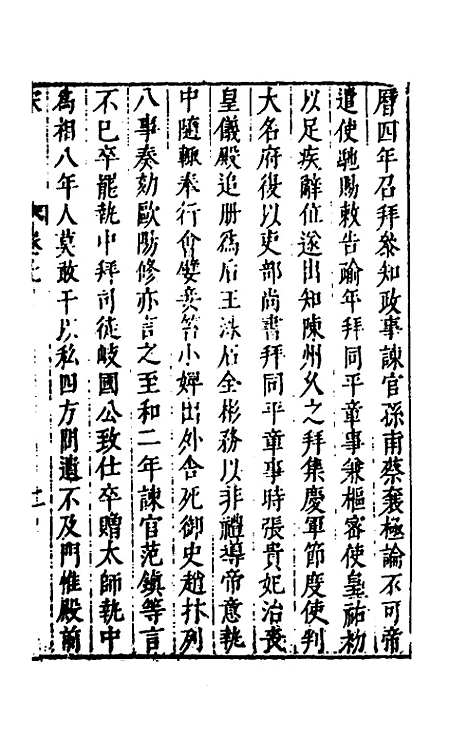 曆四年召拜叅知政事諫官孫甫蔡襄極論不可帝
遣使馳賜敕告踰年拜同平章事兼樞密使皇祐初
以足疾辭位遂出知陳州久之拜集慶軍節度使判
大名府復以吏部尚書拜同平章事時張貴妃治喪
皇儀殿追册爲后王洙石全彬務以非禮導帝意執
中隨輒奉行會嬖妾笞小婢出外舎死御史趙抃列
八事奏劾歐陽修亦言之至和二年諫官范鎮等言
不已卒罷執中拜司徒岐國公致仕卒贈太師執中
爲相八年人莫敢干以私四方問遺不及門惟殿前